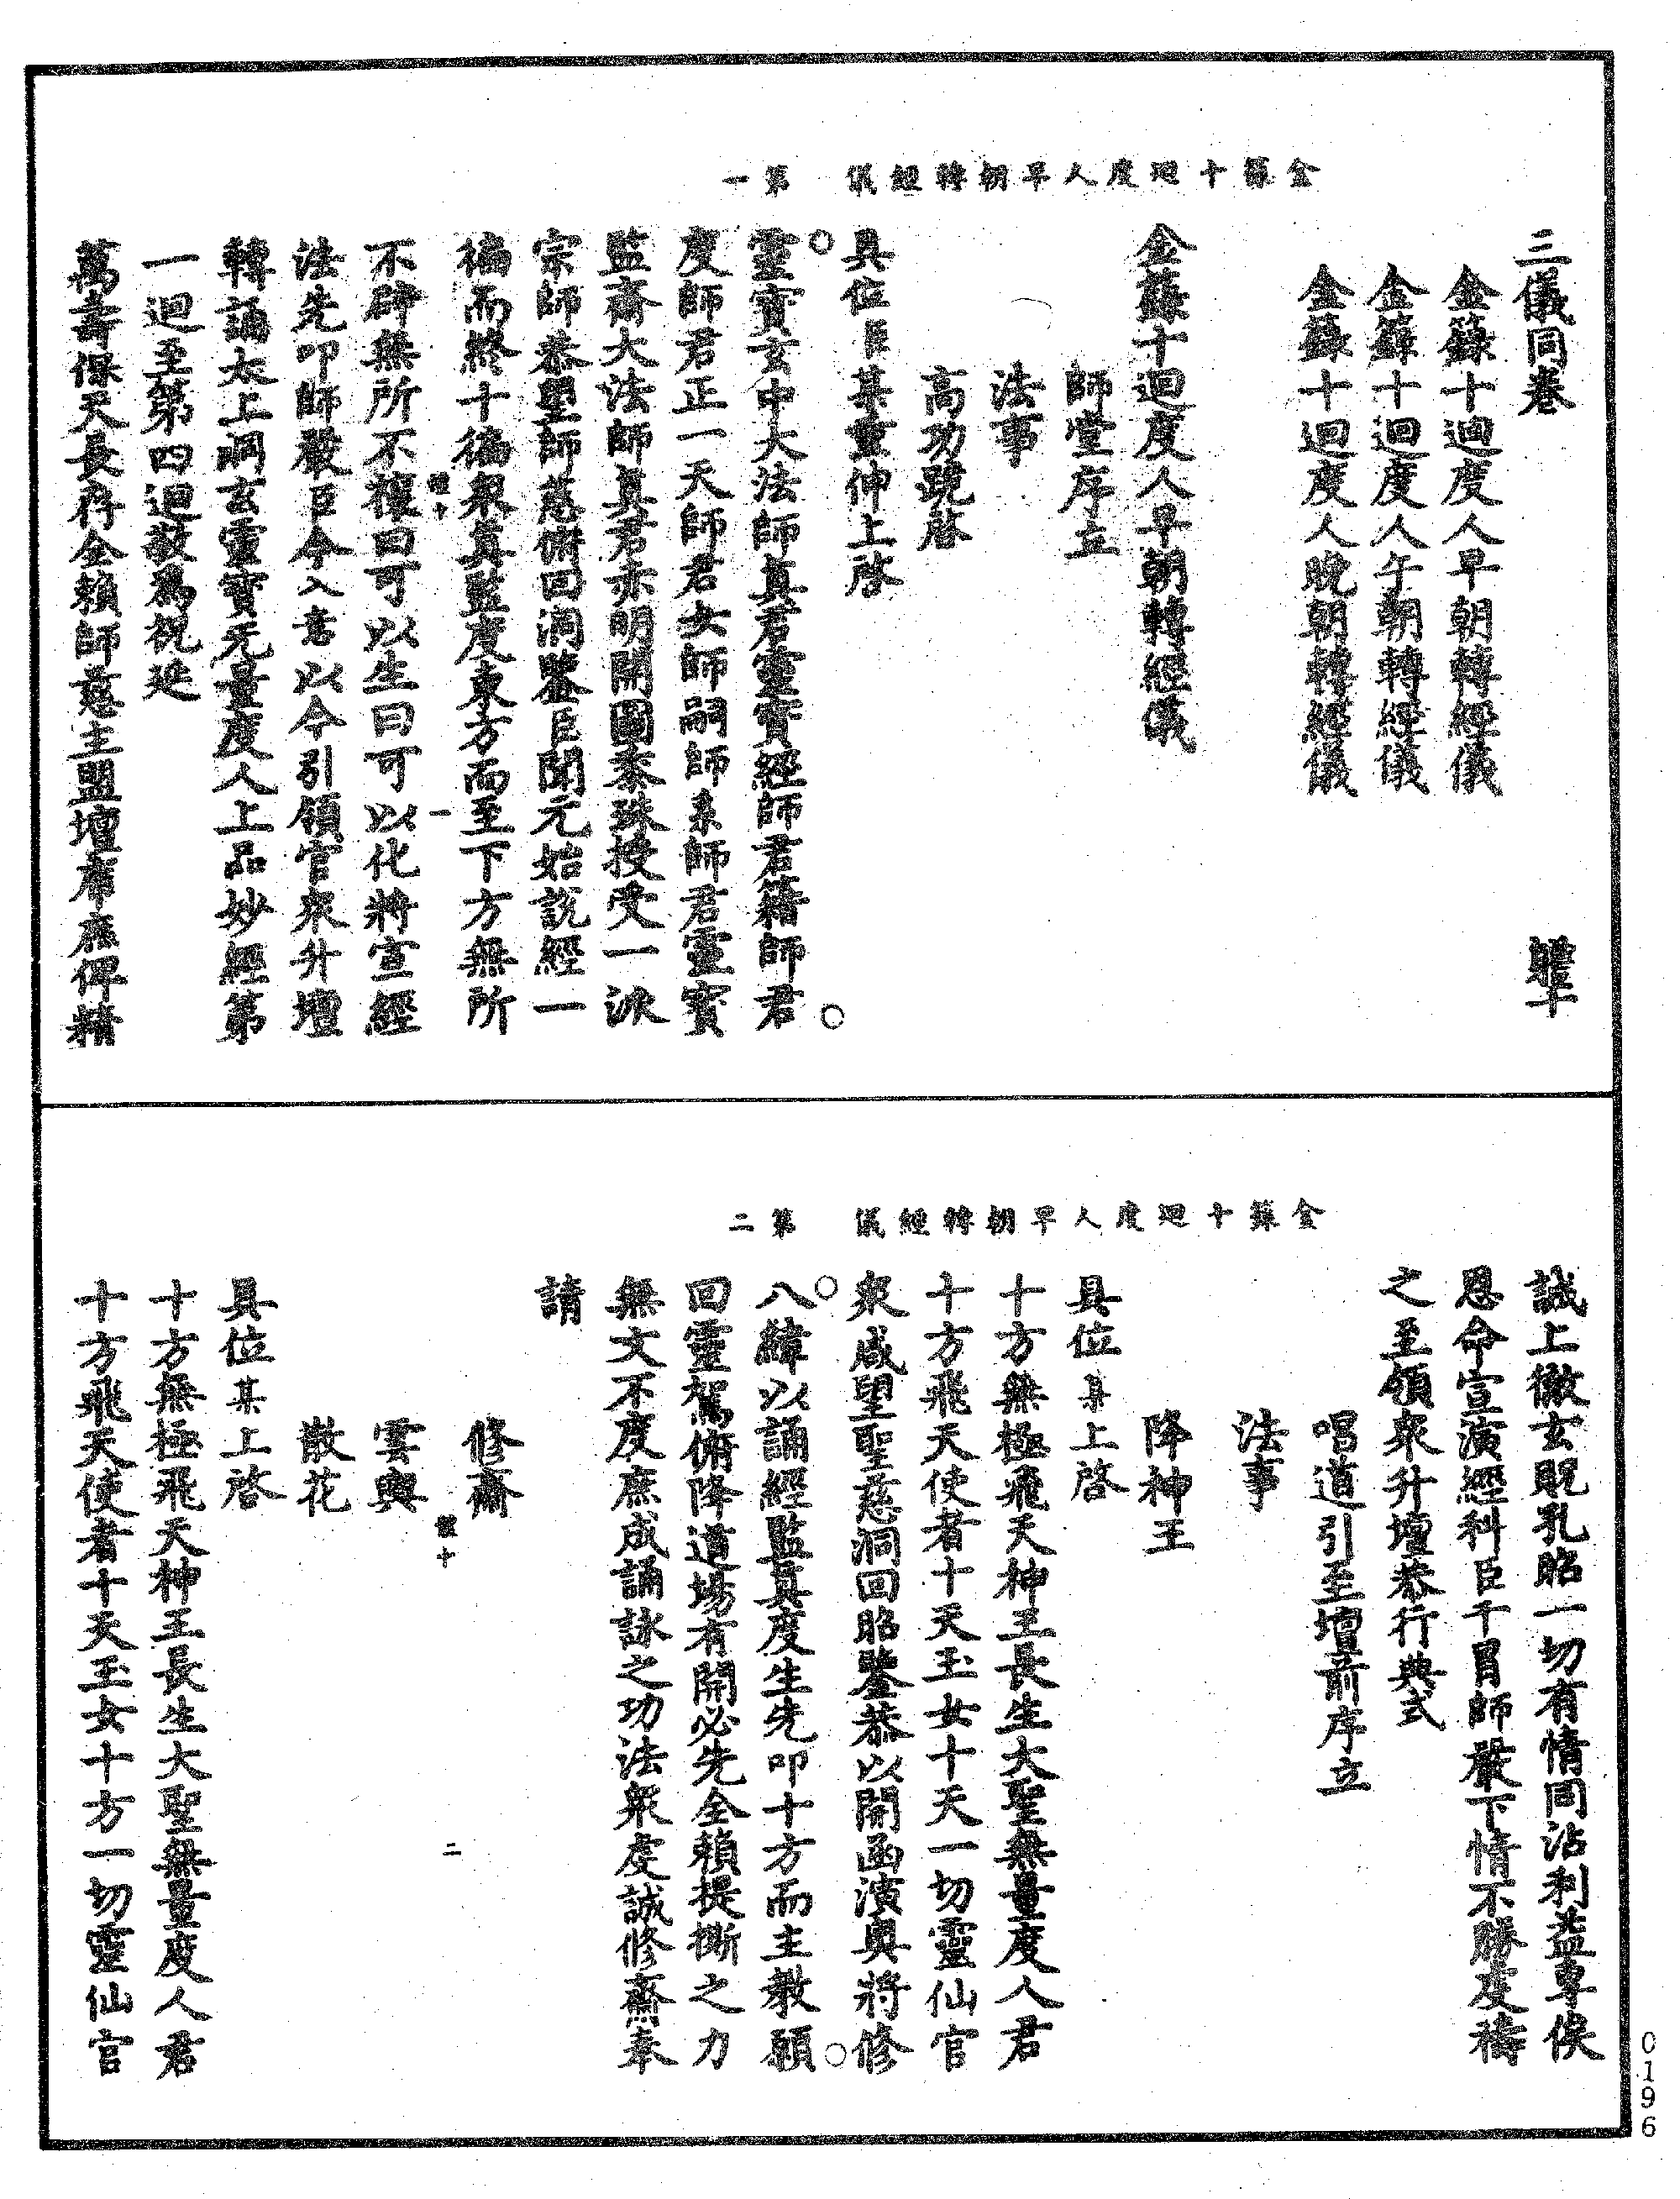 金籙十迴度人早朝轉經儀　第一
三儀同卷
金籙十迴度人早朝轉經儀
金籙十迴度人午朝轉經儀
金籙十迴度人晚朝轉經儀
金籙十迴度人早朝轉經儀
師堂序立
法事
高功跪啓
具位臣某重伸上啓
靈寶玄中大法師真君靈寶經師君籍師君
度師君正一天師君女師嗣師系師君靈寶
監齋大法師真君赤明開圖黍珠授受一派
宗師恭望師慈俯回洞鑒臣聞元始說經一
徧而終十徧衆真監度東方而至下方無所
不辟無所不禳曰可以生曰可以化將宣經
法先叩師嚴臣今入意以今引領官衆升壇
轉誦太上洞玄靈寶无量度人上品妙經第
一迴至第四迴敬為祝延
萬壽保天長存全賴師慈主盟壇席庶俾精
金籙十迴度人早朝轉經儀　第二
誠上徹玄貺孔昭一切有情同沾利益專俟
恩命宣演經科臣干冒師嚴下情不勝虔禱
之至領衆升壇恭行典式
唱道引至壇前序立
法事
降神王
具位某上啓
十方無極飛天神王長生大聖無量度人君
十方飛天使者十天玉女十天一切靈仙官
衆咸望聖慈洞回昭鑒恭以開函演奧將修
八緯以誦經監真度生先叩十方而主教願
回靈駕俯降道場有開必先全賴提撕之力
無文不度庶成誦詠之功法衆虔誠修齋奉
請
修齋
雲輿
散花
具位某上啓
十方無極飛天神王長生大聖無量度人君
十方飛天使者十天玉女十方一切靈仙官
0196